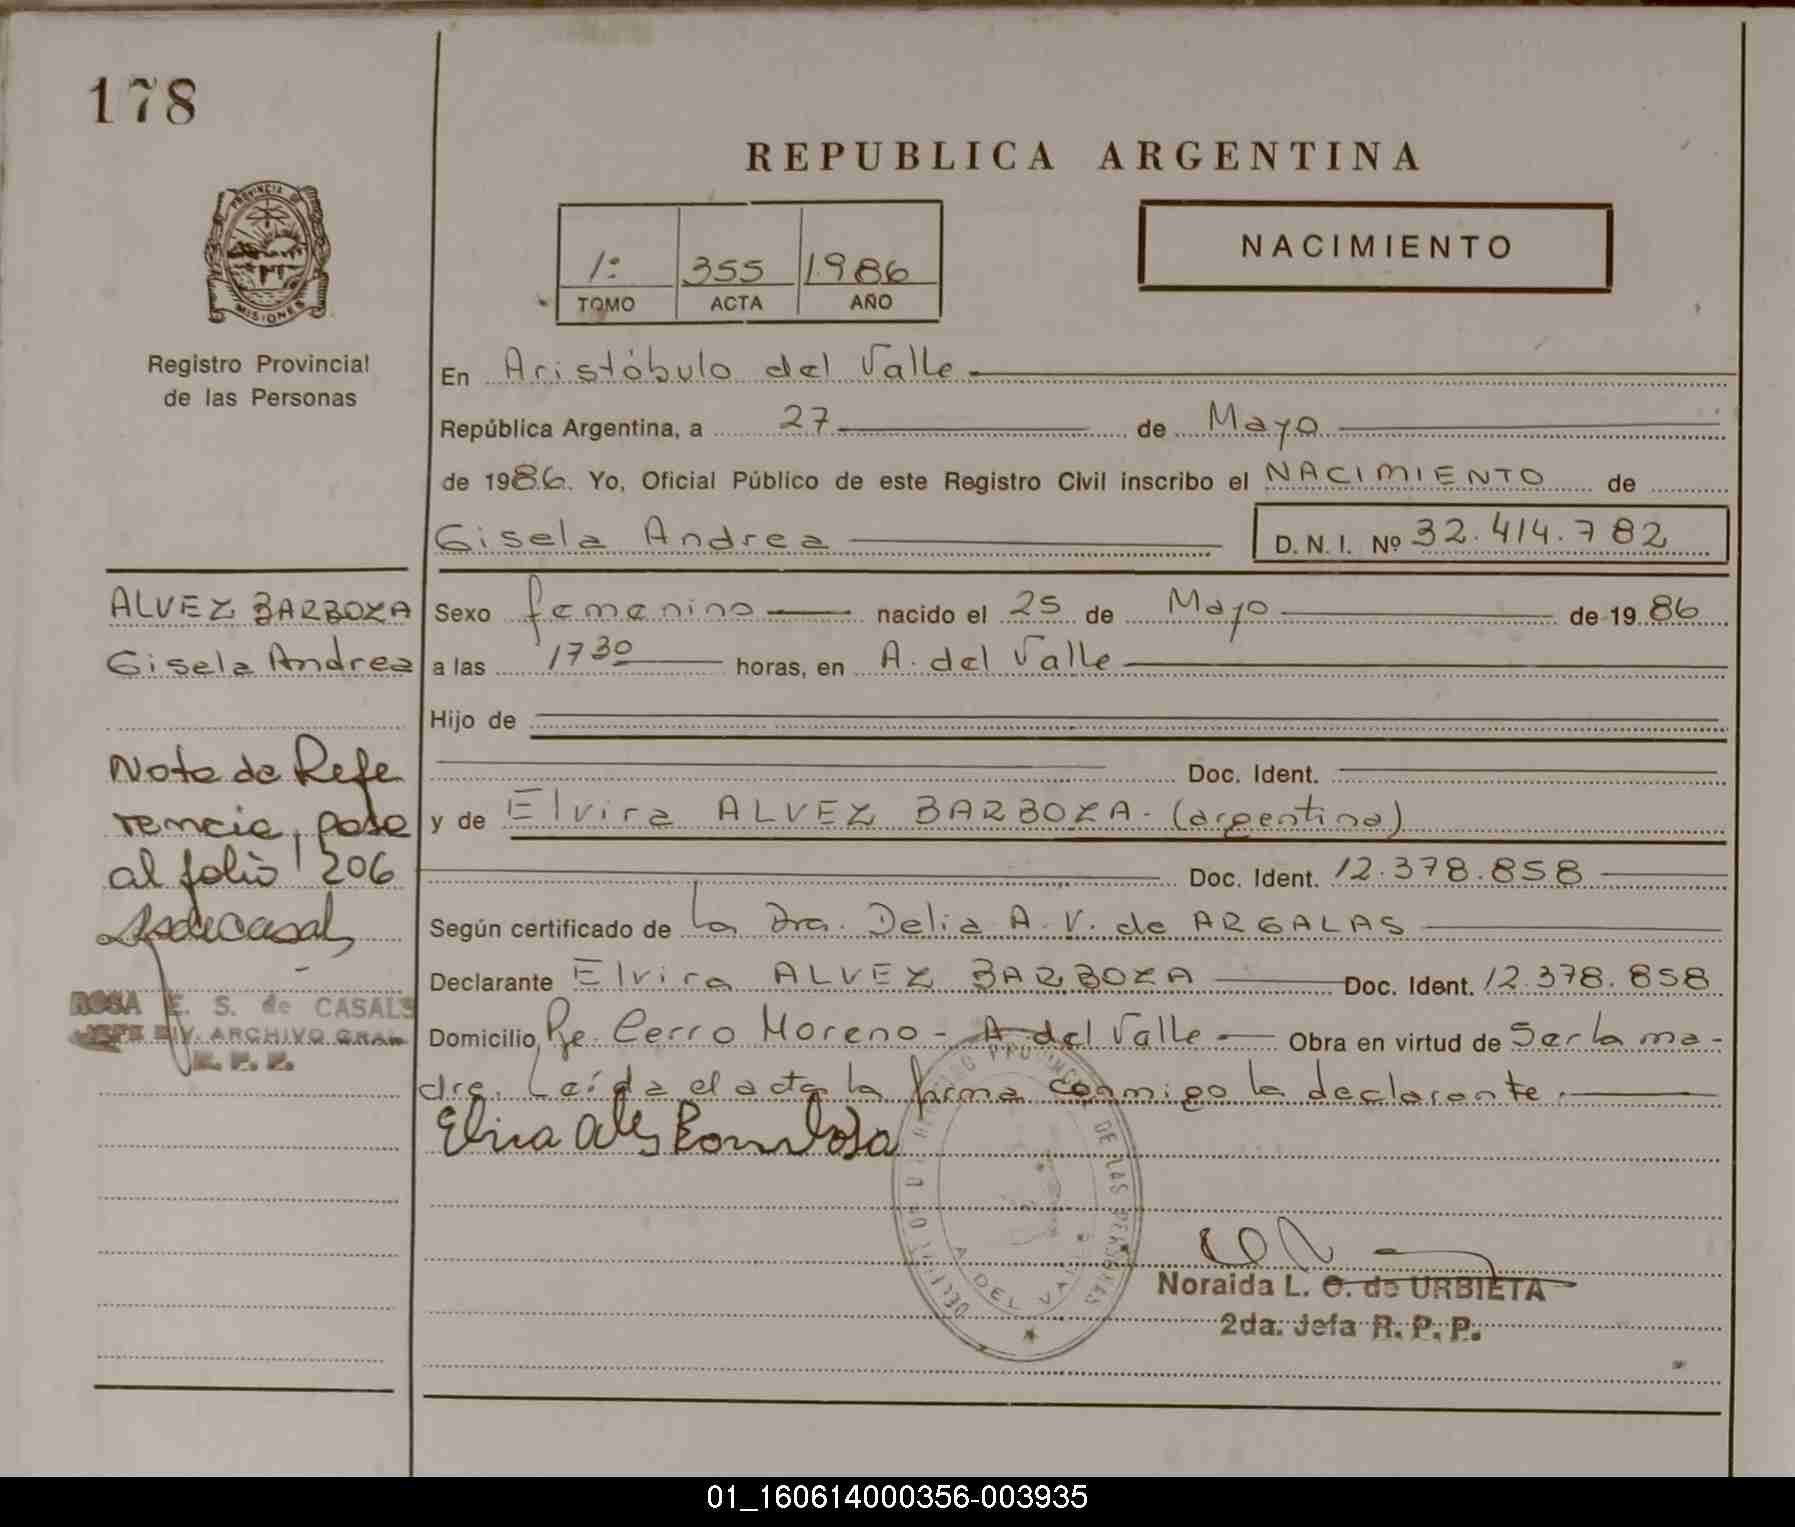 178
REPUBLICA ARGENTINA
PROVINCIA DE
MISIONES
Registro Provincial
de las Personas
1: 355 1986
TOMO ACTA AÑO
NACIMIENTO
En Aristóbulo del Valle
República Argentina, a 27 de Mayo
de 1986. Yo, Oficial Público de este Registro Civil inscribo el NACIMIENTO de
Gisela Andrea D. N. I. Nº 32.414.782
Sexo femenino nacido el 25 de Mayo de 1986
a las 17 30 horas, en A. del Valle
Hijo de
Doc. Ident.
y de Elvira ALVEZ BARBOZA- (argentina)
Doc. Ident. 12.378.858
Según certificado de La Dra. Delia A. V. de ARGALAS
Declarante Elvira ALVEZ BARBOZA Doc. Ident. 12.378.858
Domicilio Cerro Moreno - A del Valle Obra en virtud de Ser la ma-
dre. Leída el acta la firma conmigo la declarante.
ALVEZ BARBOZA
Gisela Andrea
Nota de Refe
rencia, pase
al folio 206
ROSA E. S. de CASALS
JEFE DIV. ARCHIVO GRAL
R. P. P.
DE LAS PERSONAS
A. DEL VALLE
Noraida L. O. de URBIETA
2da. Jefa R. P. P.
01_160614000356-003935